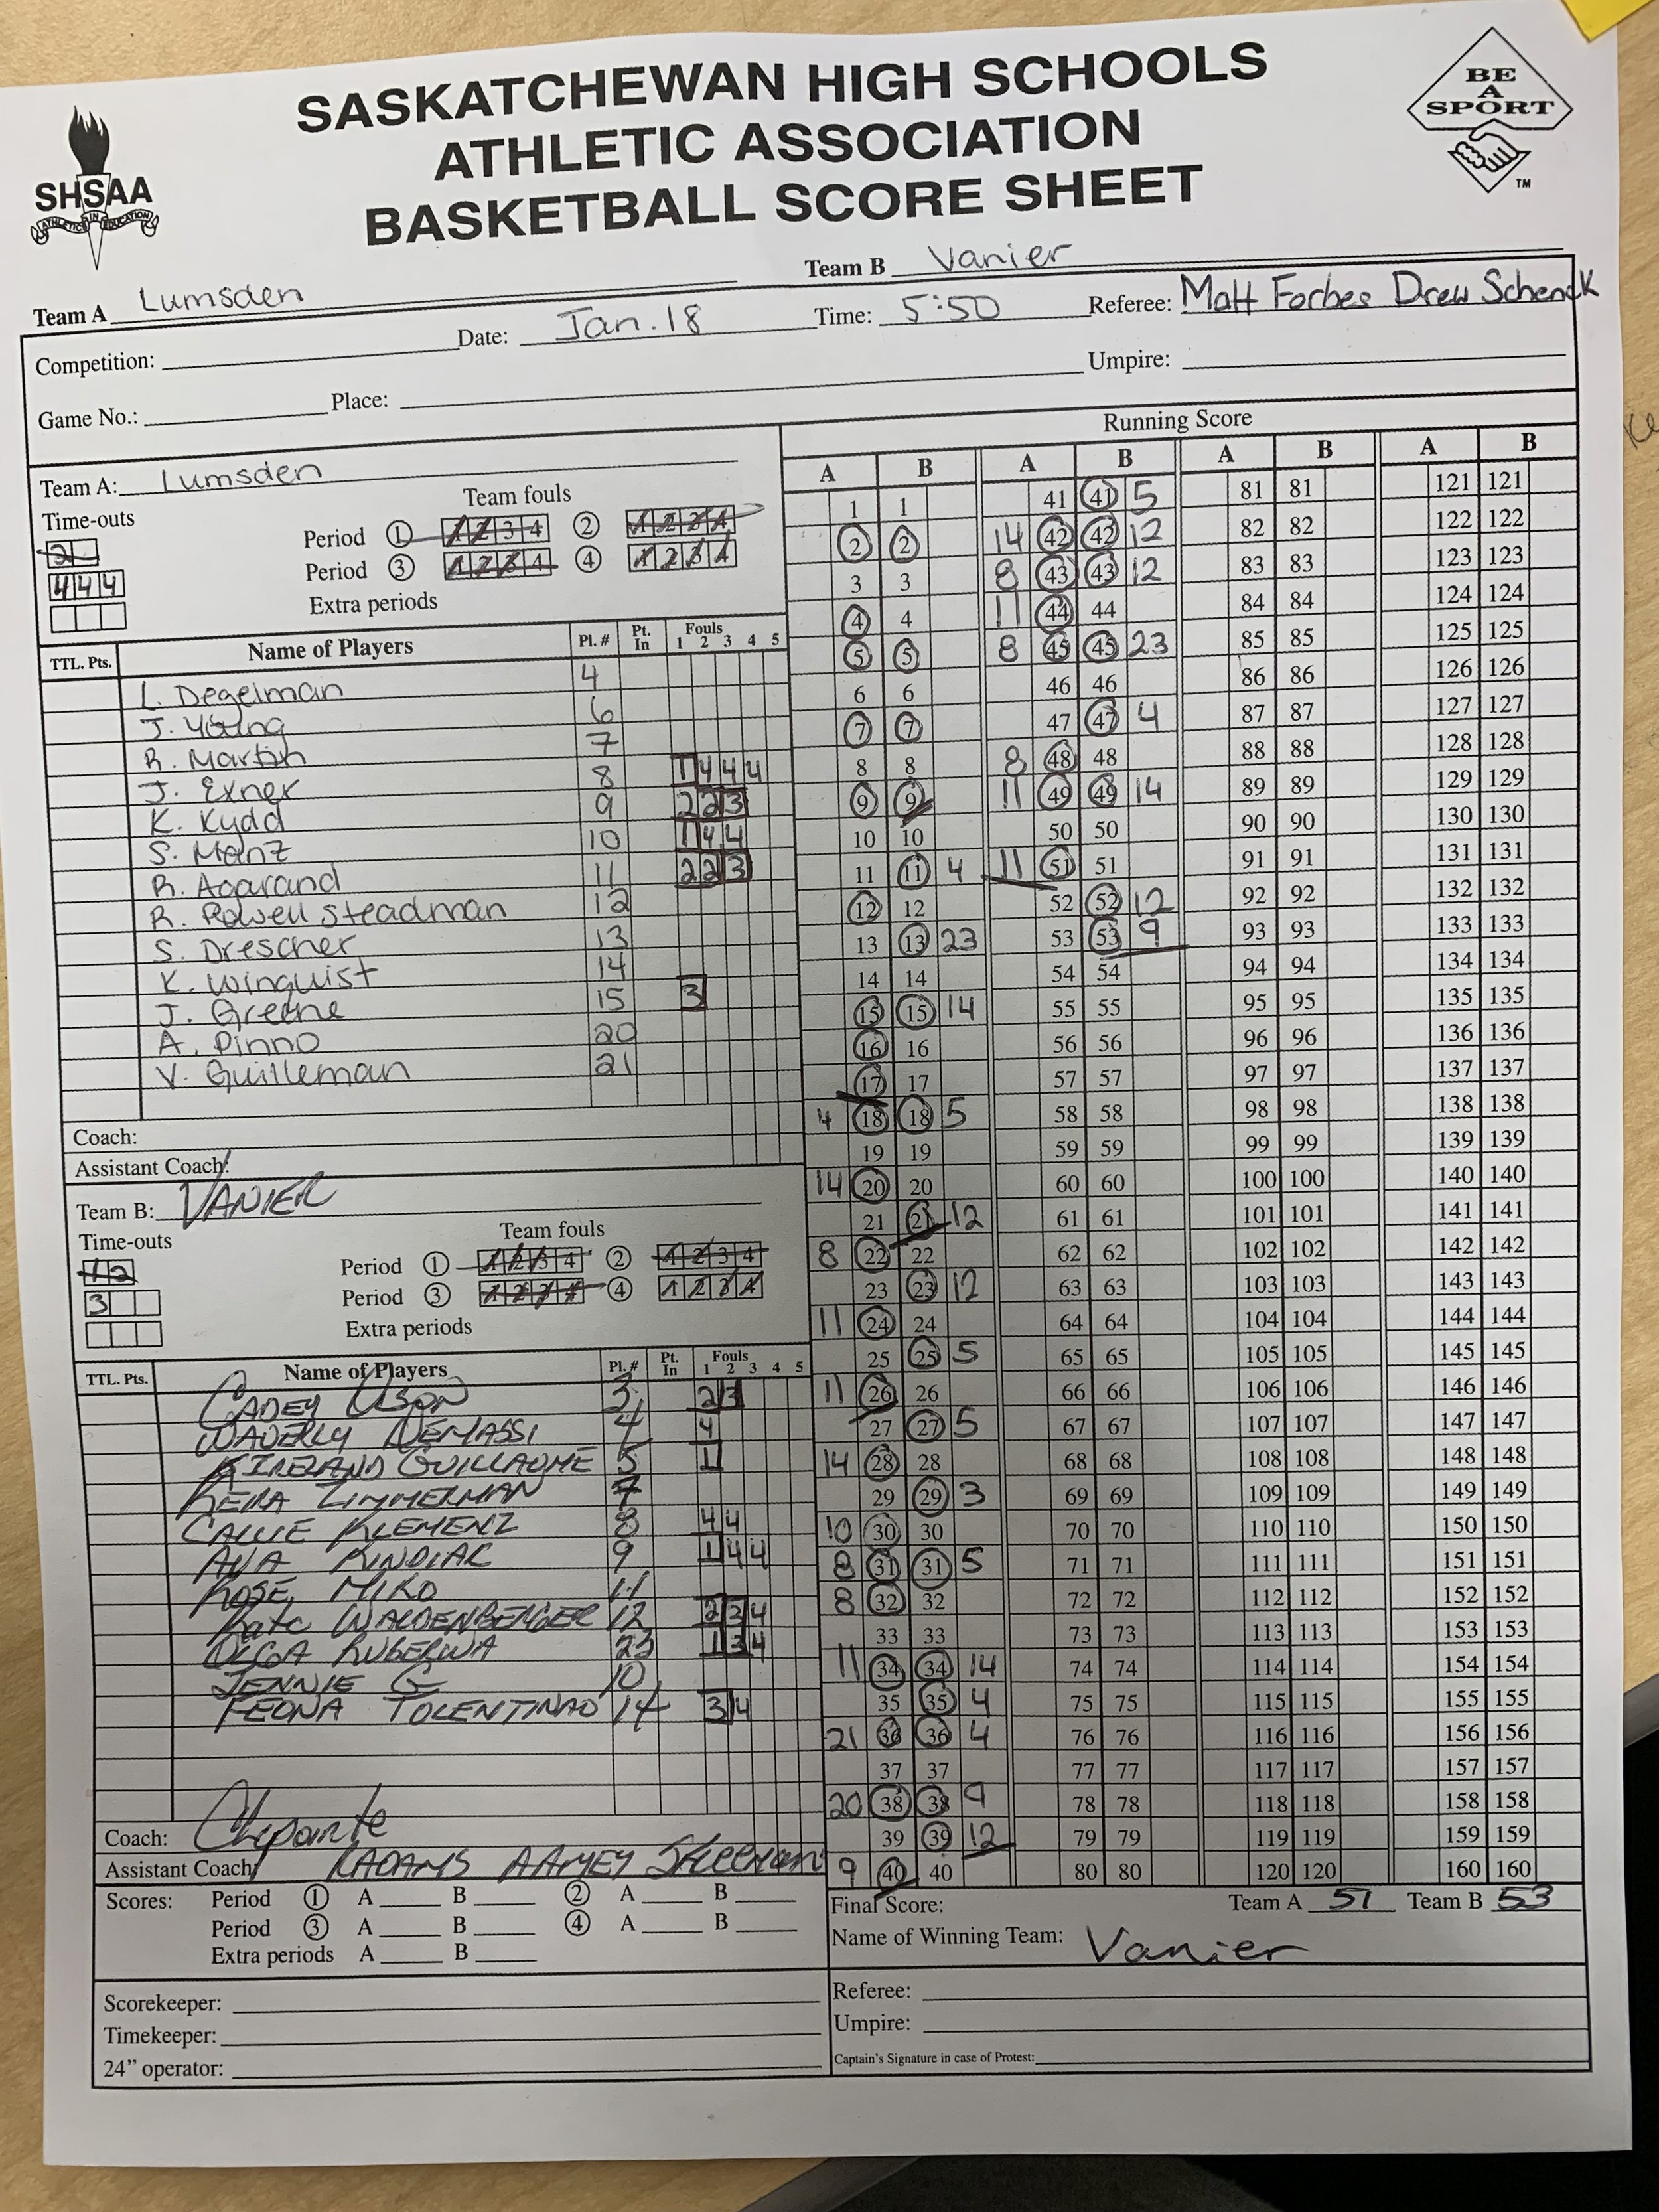 SASKATCHEWAN HIGH SCHOOLS
ATHLETIC ASSOCIATION
BASKETBALL SCORE SHEET
SHSAA
ATHLETICS IN EDUCATION
BE A SPORT
TM
Team A Lumsden
Team B Vanier
Competition: Date: Jan. 18 Time: 5:50 Referee: Matt Forbes Drew Schenck
Game No.: Place: Umpire:
Team A: Lumsden
Time-outs Team fouls
2
4 4 4
Period 1 1 2 3 4 2 1 2 3 4
Period 3 1 2 3 4 4 1 2 3 4
Extra periods
TTL. Pts. Name of Players Pl. # Pt. In Fouls 1 2 3 4 5
L. Degelman 4
J. Young 6
R. Martin 7
J. Exner 8 1 4 4 4
K. Kydd 9 2 2 3
S. Manz 10 1 4 4
R. Agarand 11 2 2 3
R. Rowell Steadman 12
S. Drescher 13
K. Winquist 14
J. Greene 15 3
A. Pinno 20
V. Guilleman 21
Coach:
Assistant Coach:
Team B: VANIER
Time-outs Team fouls
1 2
3
Period 1 1 2 3 4 2 1 2 3 4
Period 3 1 2 3 4 4 1 2 3 4
Extra periods
TTL. Pts. Name of Players Pl. # Pt. In Fouls 1 2 3 4 5
CADEY OLSON 3 2 3
WAVERLY NEMASSI 4 4
KIRELAND GUILLAUME 5 1
KEIRA ZIMMERMAN 7
CALLIE KLEMENZ 8 4 4
AVA KINDIAK 9 1 4 4
ROSE MIKO 11
Kate WALDENBERGER 12 2 3 4
OLGA RUBERWA 23 1 3 4
JENNIE G 10
FEONA TOLENTINAO 14 3 4
Coach:
Assistant Coach: K ADAMS
Scores: Period 1 A B 2 A B
Period 3 A B 4 A B
Extra periods A B
Scorekeeper:
Timekeeper:
24” operator:
Running Score
A B A B A B A B
1 1 41 41 5 81 81 121 121
2 2 14 42 42 12 82 82 122 122
3 3 8 43 43 12 83 83 123 123
4 4 11 44 44 84 84 124 124
5 5 8 45 45 23 85 85 125 125
6 6 46 46 86 86 126 126
7 7 47 47 4 87 87 127 127
8 8 8 48 48 88 88 128 128
9 9 11 49 49 14 89 89 129 129
10 10 50 50 90 90 130 130
11 11 4 11 51 51 91 91 131 131
12 12 52 52 12 92 92 132 132
13 13 23 53 53 9 93 93 133 133
14 14 54 54 94 94 134 134
15 15 14 55 55 95 95 135 135
16 16 56 56 96 96 136 136
17 17 57 57 97 97 137 137
4 18 18 5 58 58 98 98 138 138
19 19 59 59 99 99 139 139
14 20 20 60 60 100 100 140 140
21 21 12 61 61 101 101 141 141
8 22 22 62 62 102 102 142 142
23 23 12 63 63 103 103 143 143
11 24 24 64 64 104 104 144 144
25 25 5 65 65 105 105 145 145
11 26 26 66 66 106 106 146 146
27 27 5 67 67 107 107 147 147
14 28 28 68 68 108 108 148 148
29 29 3 69 69 109 109 149 149
10 30 30 70 70 110 110 150 150
8 31 31 5 71 71 111 111 151 151
8 32 32 72 72 112 112 152 152
33 33 73 73 113 113 153 153
11 34 34 14 74 74 114 114 154 154
35 35 4 75 75 115 115 155 155
21 36 36 4 76 76 116 116 156 156
37 37 77 77 117 117 157 157
20 38 38 9 78 78 118 118 158 158
39 39 12 79 79 119 119 159 159
9 40 40 80 80 120 120 160 160
Final Score: Team A 51 Team B 53
Name of Winning Team: Vanier
Referee:
Umpire:
Captain's Signature in case of Protest: